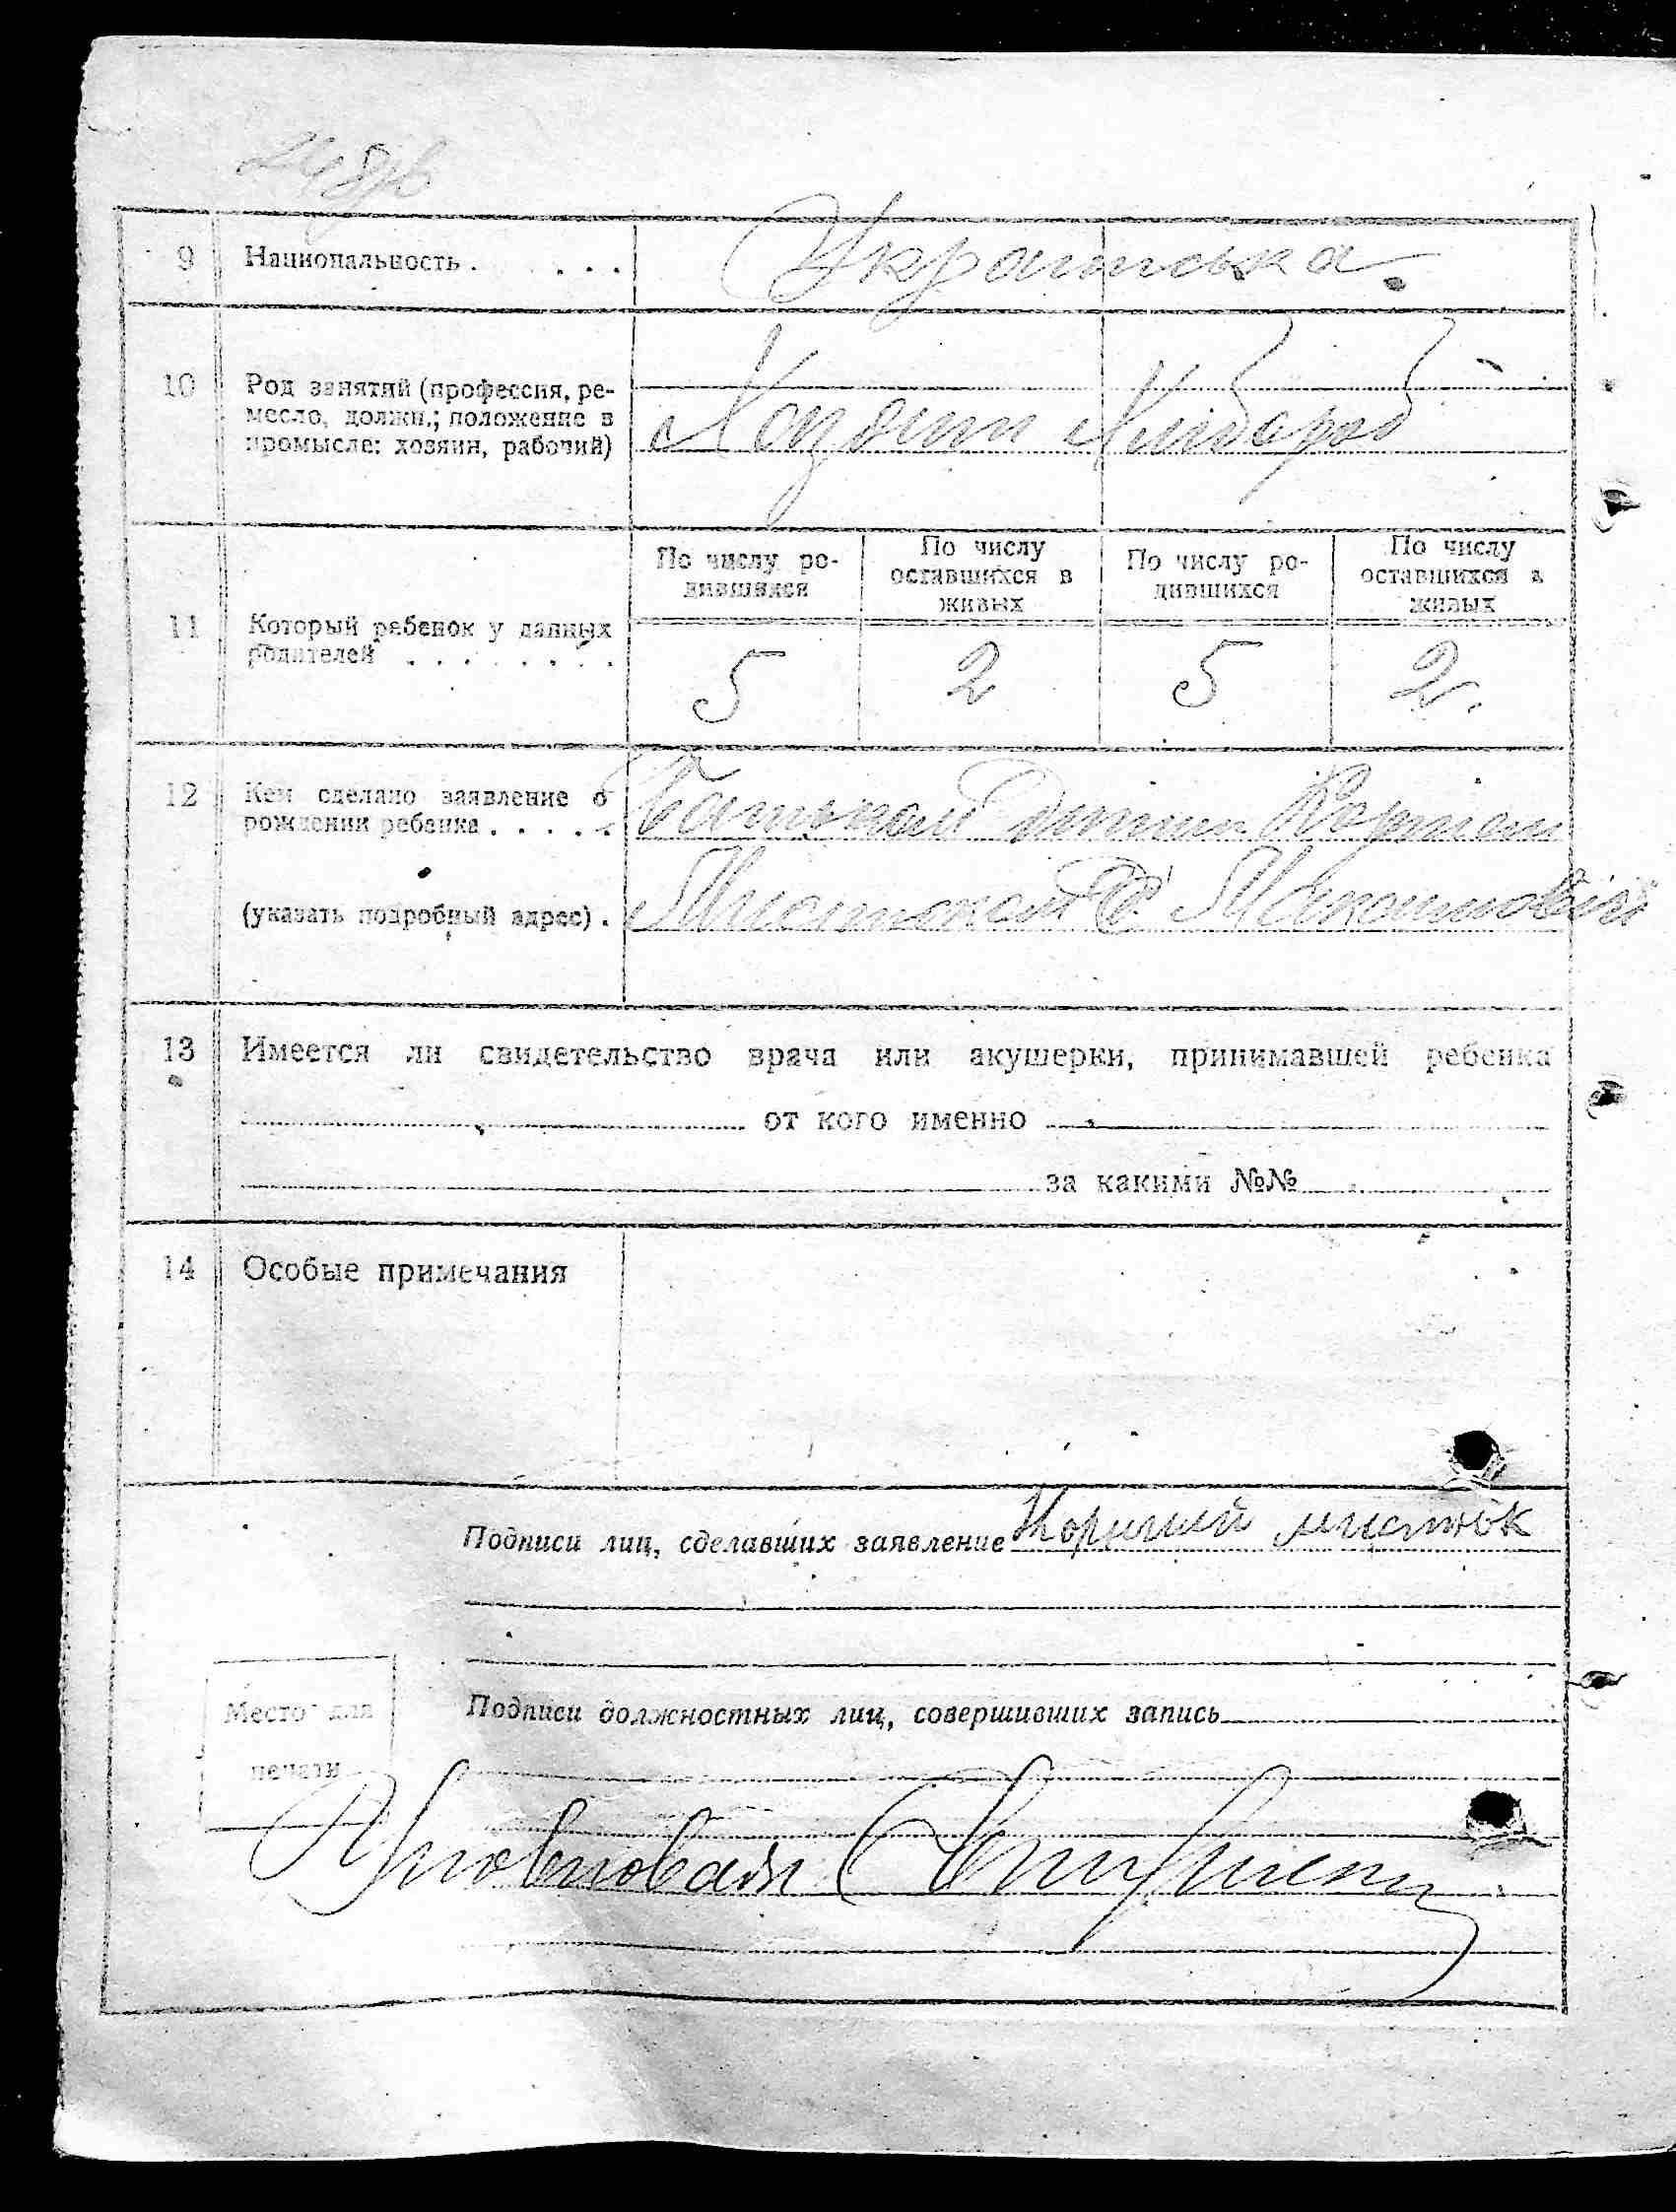 9 Национальность . . . . Українська
10 Род занятий (профессия, ре-
месло, должн.; положение в
промысле: хозяин, рабочий)
Хлібороб
По числу ро-
дившихся
По числу
оставшихся в
живых
По числу ро-
дившихся
По числу
оставшихся в
живых
11 Который ребенок у данных
родителей . . . . . . . .
5 2 5 2.
12 Кем сделано заявление о
рождении ребенка . . . . . Батьком дитини
(указать подробный адрес) .
13 Имеется ли свидетельство врача или акушерки, принимавшей ребенка
от кого именно
за какими №№
14 Особые примечания
Подписи лиц, сделавших заявление
Место для
печати
Подписи должностных лиц, совершивших запись